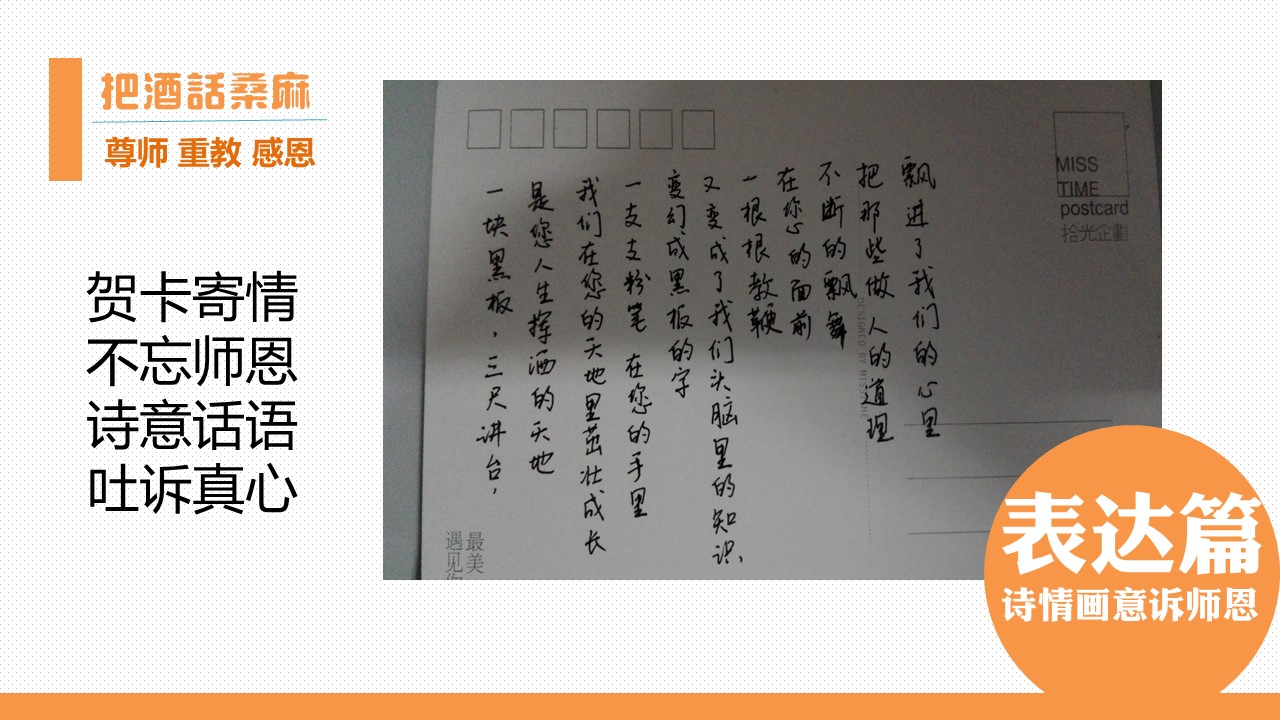 把酒話桑麻
尊师 重教 感恩
贺卡寄情
不忘师恩
诗意话语
吐诉真心
一块黑板，三尺讲台，
是您人生挥洒的天地
我们在您的天地里茁壮成长
一支支粉笔 在您的手里
变幻成黑板的字
又变成了我们头脑里的知识、
一根根教鞭
在您的面前
不断的飘舞
把那些做人的道理
飘进了我们的心里
MISS
TIME
postcard
拾光企劃
最美
遇见你
表达篇
诗情画意诉师恩